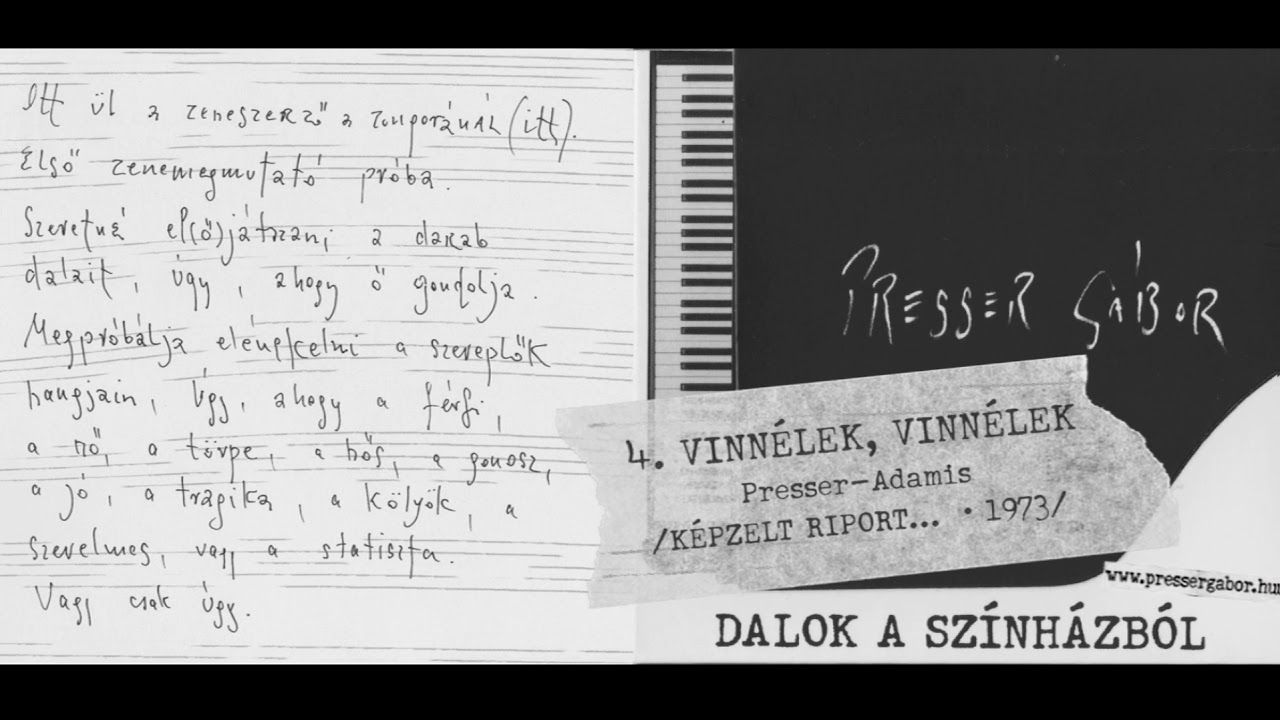 Itt ül a zeneszerző a zongoránál (itt).
Első zenemegmutató próba.
Szeretné el(ő)játszani a darab
dalait, úgy, ahogy ő gondolja.
Megpróbálja elénekelni a szereplők
hangjain, úgy, ahogy a férfi,
a nő, a törpe, a hős, a gonosz,
a jó, a tragika, a kölyök, a
szerelmes, vagy a statiszta.
Vagy csak úgy.
PRESSER GÁBOR
4. VINNÉLEK, VINNÉLEK
Presser-Adamis
/KÉPZELT RIPORT... • 1973/
www.pressergabor.hu
DALOK A SZÍNHÁZBÓL